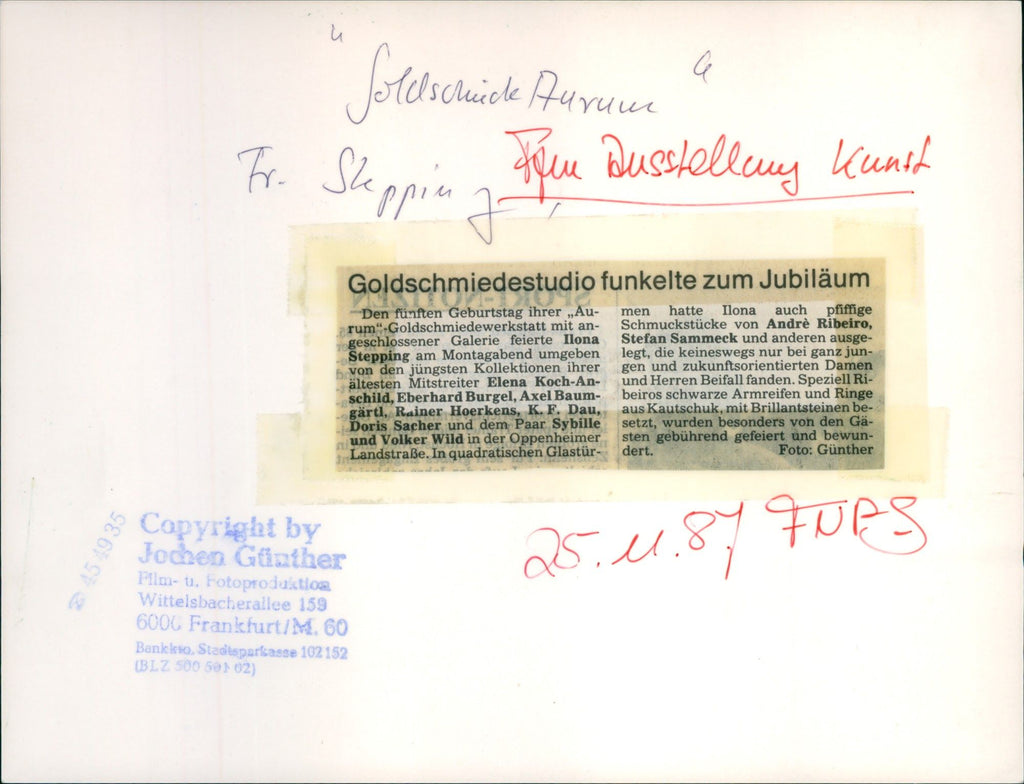 "Goldschmiede Aurum"
Fr. Stepping,
Ffm Ausstellung Kunst
Goldschmiedestudio funkelte zum Jubiläum
Den fünften Geburtstag ihrer „Au-
rum“-Goldschmiedewerkstatt mit an-
geschlossener Galerie feierte Ilona
Stepping am Montagabend umgeben
von den jüngsten Kollektionen ihrer
ältesten Mitstreiter Elena Koch-An-
schild, Eberhard Burgel, Axel Baum-
gärtl, Rainer Hoerkens, K. F. Dau,
Doris Sacher und dem Paar Sybille
und Volker Wild in der Oppenheimer
Landstraße. In quadratischen Glastür-
men hatte Ilona auch pfiffige
Schmuckstücke von Andrè Ribeiro,
Stefan Sammeck und anderen ausge-
legt, die keineswegs nur bei ganz jun-
gen und zukunftsorientierten Damen
und Herren Beifall fanden. Speziell Ri-
beiros schwarze Armreifen und Ringe
aus Kautschuk, mit Brillantsteinen be-
setzt, wurden besonders von den Gä-
sten gebührend gefeiert und bewun-
dert. Foto: Günther
25. 11. 87
Copyright by
Jochen Günther
Film- u. Fotoproduktion
Wittelsbacherallee 159
6000 Frankfurt/M. 60
Bankkto. Stadtsparkasse 102 152
(BLZ 500 501 02)
454935